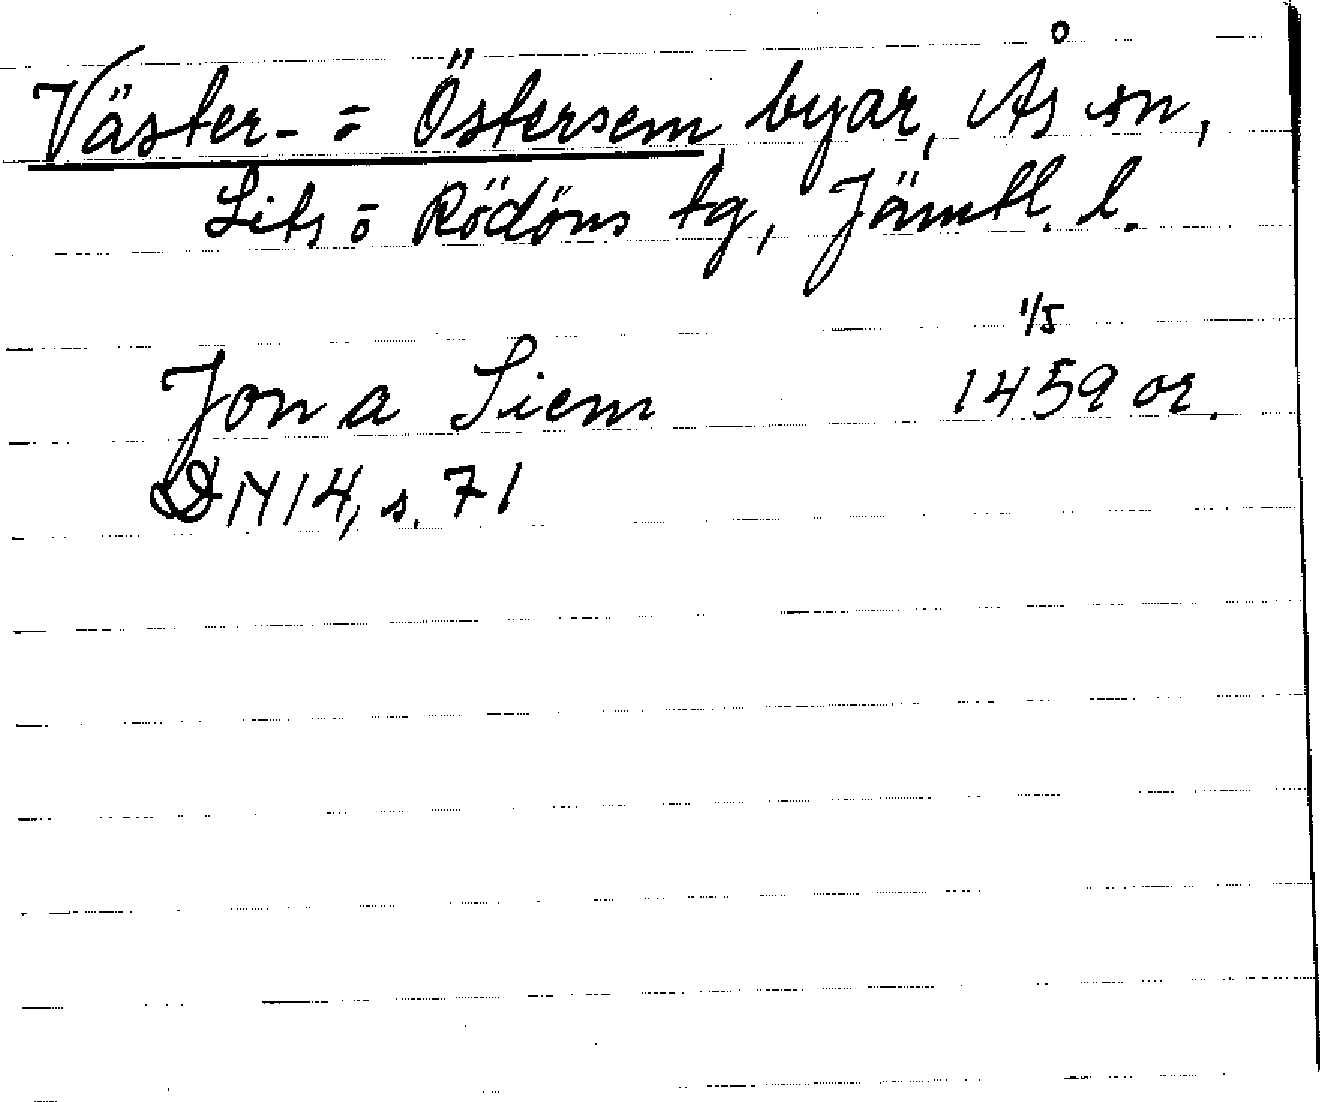 Väster- o Östersem, byar, Ås sn,
Lits o Rödöns tg, Jämtl. l.
1/5
Jon a Siem 1459 or.
DN 14, s. 71